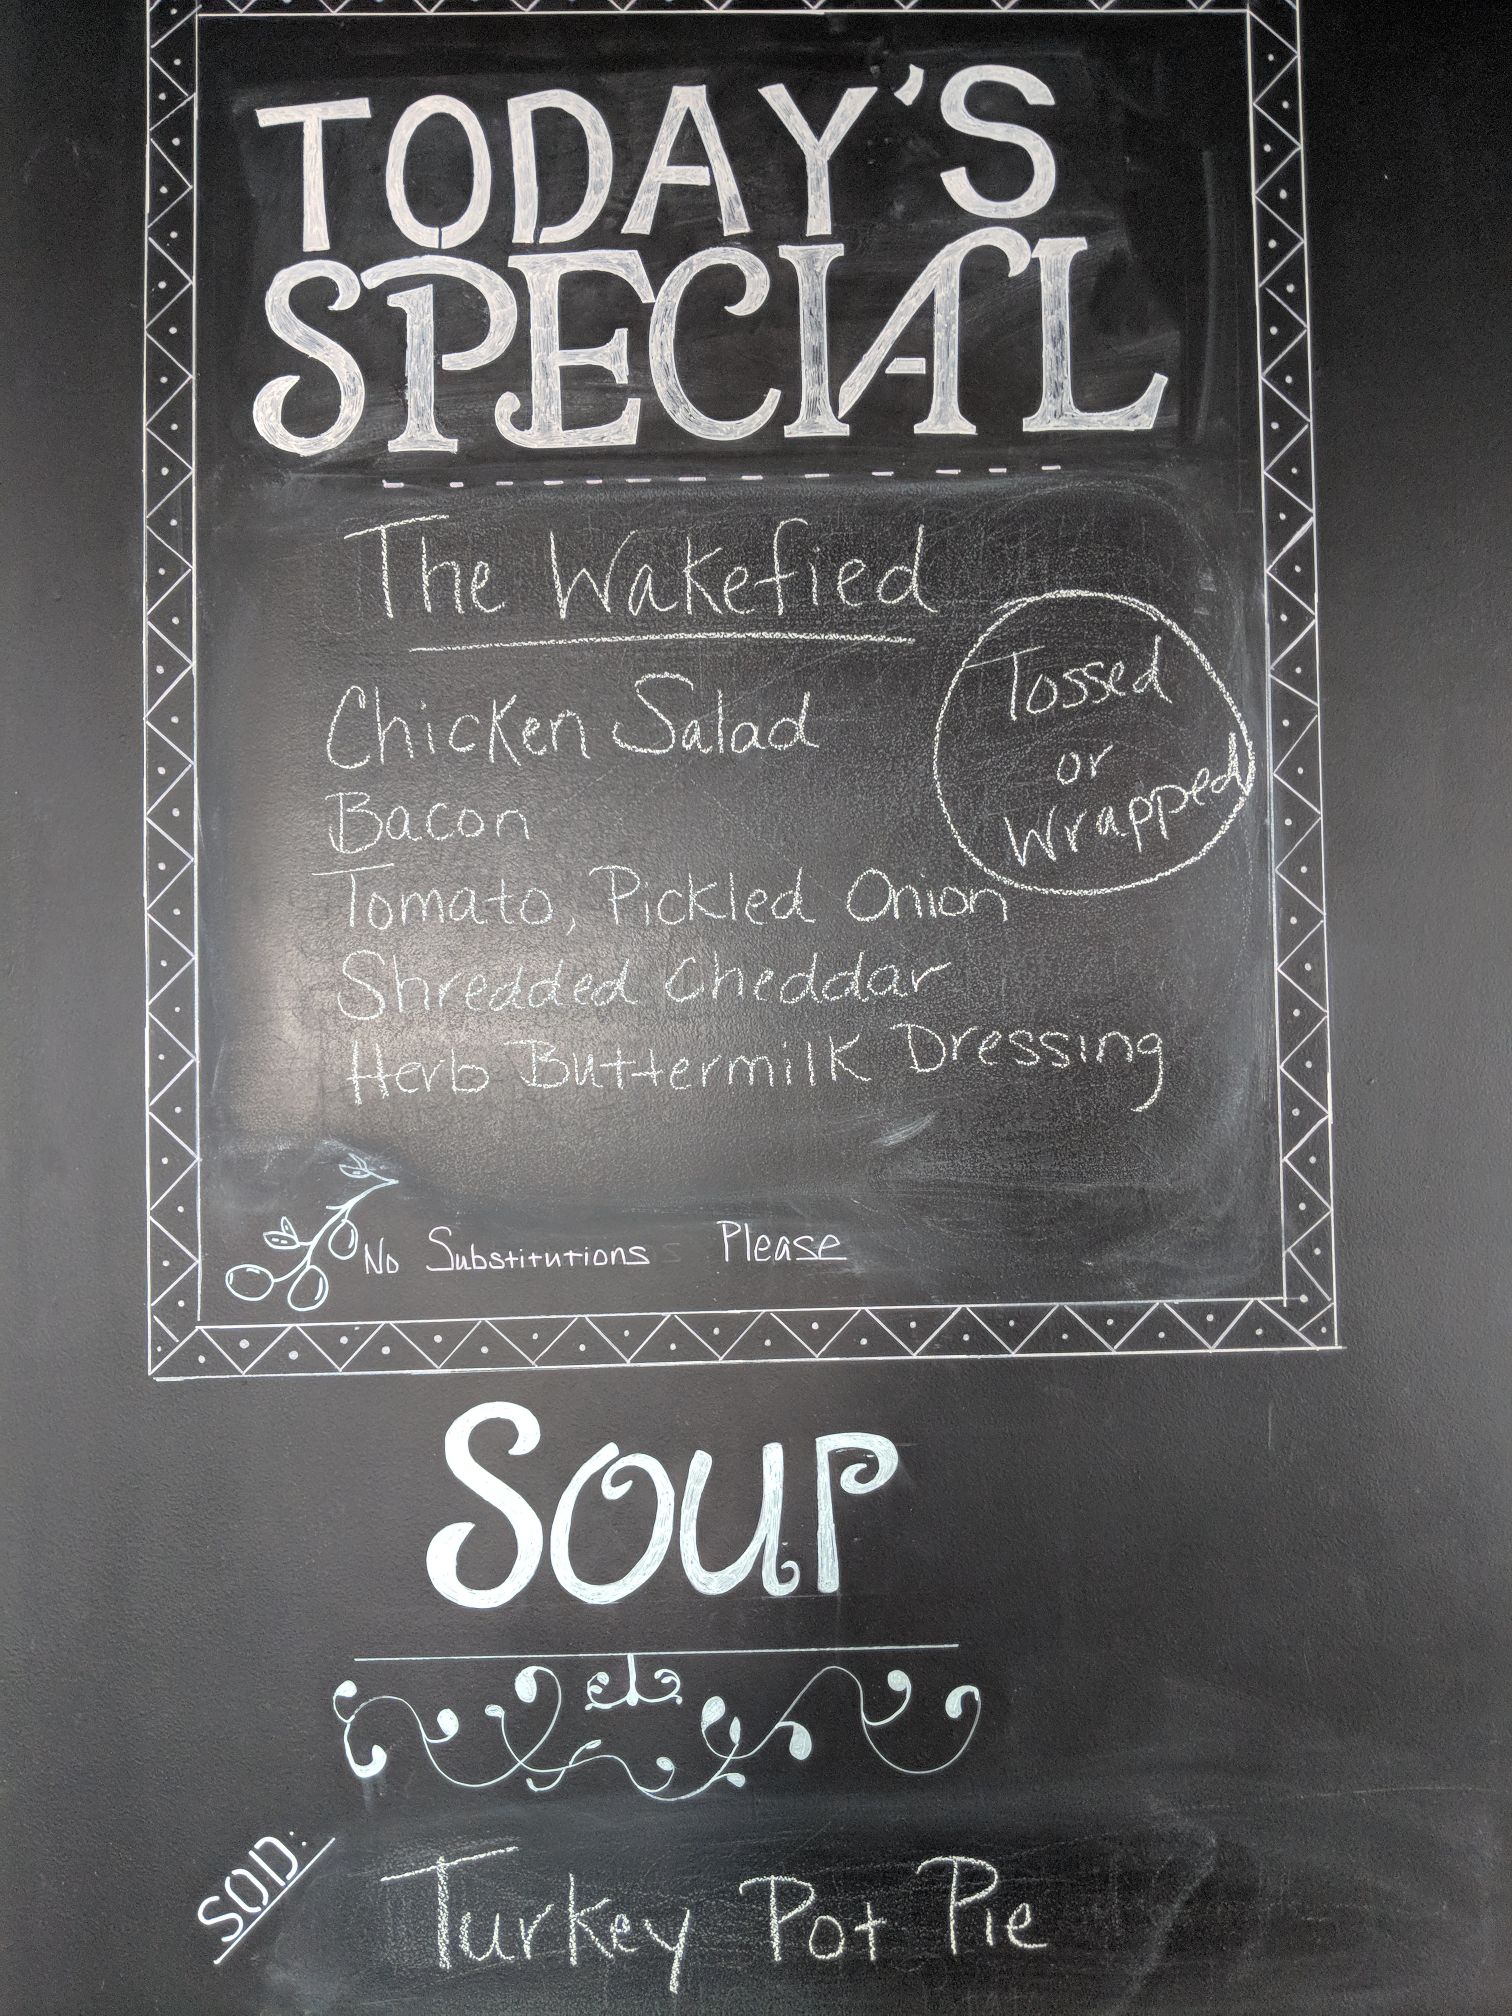 TODAY'S
SPECIAL
The Wakefied
Chicken Salad
Bacon
Tomato, Pickled Onion
Shredded Cheddar
Herb Buttermilk Dressing
Tossed
or
Wrapped
No Substitutions Please
SOUP
SOTD:
Turkey Pot Pie